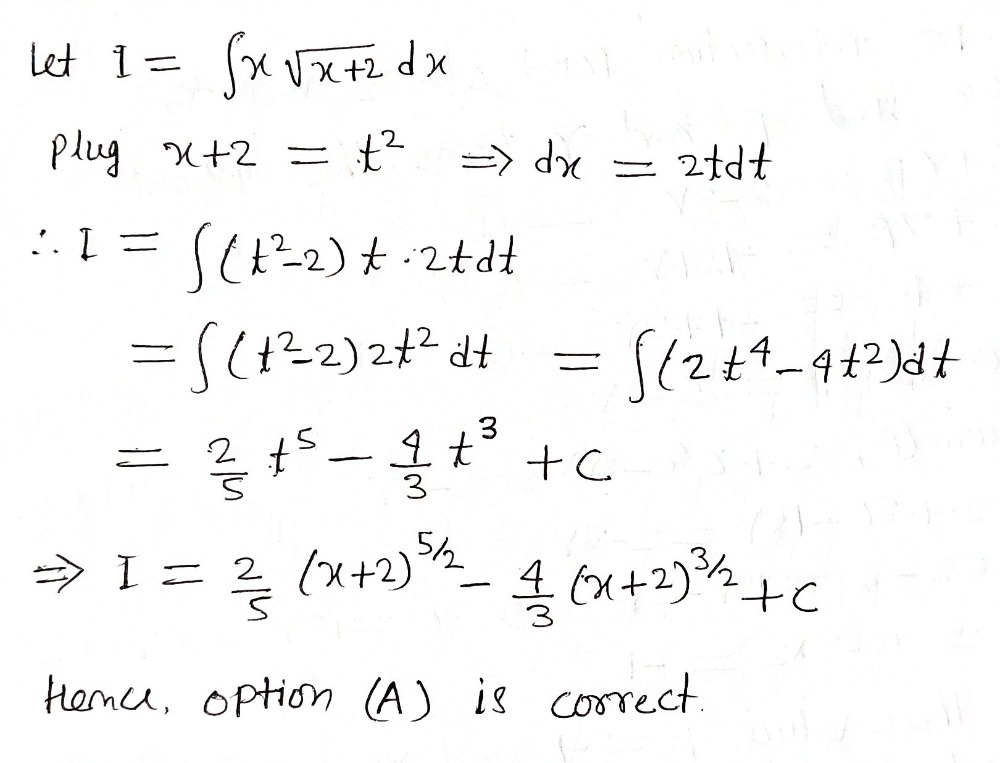 Let I = ∫x √(x+2) dx
Plug x+2 = t² => dx = 2tdt
∴ I = ∫(t²-2) t · 2tdt
= ∫(t²-2) 2t² dt = ∫(2t⁴ - 4t²)dt
= 2/5 t⁵ - 4/3 t³ + C
=> I = 2/5 (x+2)^5/2 - 4/3 (x+2)^3/2 + C
Hence, option (A) is correct.